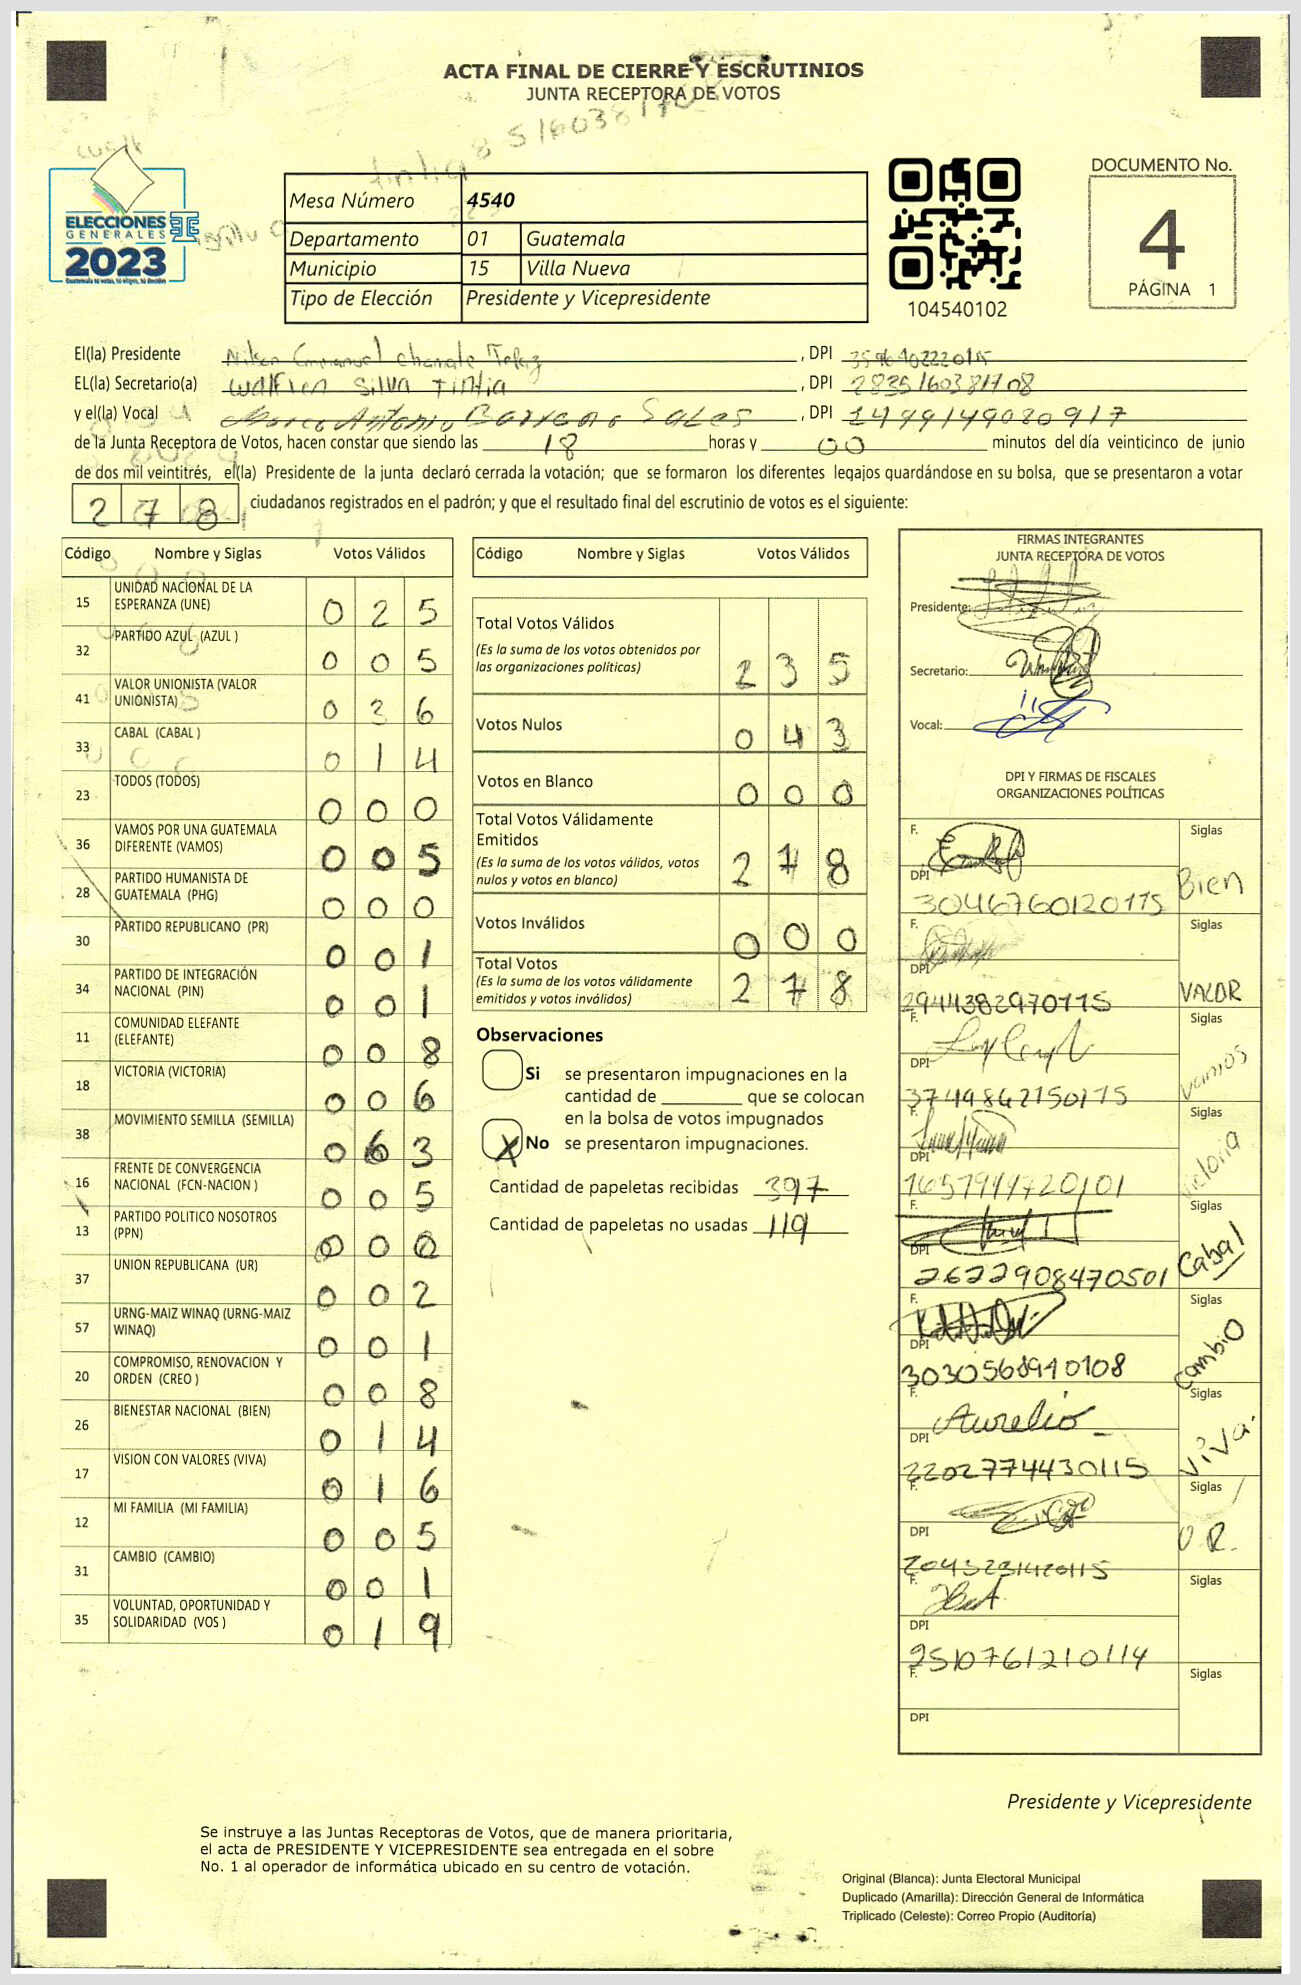 ACTA FINAL DE CIERRE Y ESCRUTINIOS
JUNTA RECEPTORA DE VOTOS
8 5160381708
tintia
ELECCIONES
GENERALES
2023
Mesa Número 4540
Departamento 01 Guatemala
Municipio 15 Villa Nueva
Tipo de Elección Presidente y Vicepresidente
104540102
DOCUMENTO No.
4
PÁGINA 1
El(la) Presidente , DPI
EL(la) Secretario(a) Walfren Silva Tintia , DPI 2835160381708
y el(la) Vocal Marco Antonio Sales , DPI 1499149080917
de la Junta Receptora de Votos, hacen constar que siendo las 18 horas y 00 minutos del día veinticinco de junio
de dos mil veintitrés, el(la) Presidente de la junta declaró cerrada la votación; que se formaron los diferentes legajos quardándose en su bolsa, que se presentaron a votar
278 ciudadanos registrados en el padrón; y que el resultado final del escrutinio de votos es el siguiente:
Código Nombre y Siglas Votos Válidos
15 UNIDAD NACIONAL DE LA ESPERANZA (UNE) 0 2 5
32 PARTIDO AZUL (AZUL ) 0 0 5
41 VALOR UNIONISTA (VALOR UNIONISTA) 0 3 6
33 CABAL (CABAL ) 0 1 4
23 TODOS (TODOS) 0 0 0
36 VAMOS POR UNA GUATEMALA DIFERENTE (VAMOS) 0 0 5
28 PARTIDO HUMANISTA DE GUATEMALA (PHG) 0 0 0
30 PARTIDO REPUBLICANO (PR) 0 0 1
34 PARTIDO DE INTEGRACIÓN NACIONAL (PIN) 0 0 1
11 COMUNIDAD ELEFANTE (ELEFANTE) 0 0 8
18 VICTORIA (VICTORIA) 0 0 6
38 MOVIMIENTO SEMILLA (SEMILLA) 0 6 3
16 FRENTE DE CONVERGENCIA NACIONAL (FCN-NACION ) 0 0 5
13 PARTIDO POLITICO NOSOTROS (PPN) 0 0 0
37 UNION REPUBLICANA (UR) 0 0 2
57 URNG-MAIZ WINAQ (URNG-MAIZ WINAQ) 0 0 1
20 COMPROMISO, RENOVACION Y ORDEN (CREO ) 0 0 8
26 BIENESTAR NACIONAL (BIEN) 0 1 4
17 VISION CON VALORES (VIVA) 0 1 6
12 MI FAMILIA (MI FAMILIA) 0 0 5
31 CAMBIO (CAMBIO) 0 0 1
35 VOLUNTAD, OPORTUNIDAD Y SOLIDARIDAD (VOS ) 0 1 9
Código Nombre y Siglas Votos Válidos
Total Votos Válidos 2 3 5
(Es la suma de los votos obtenidos por
las organizaciones políticas)
Votos Nulos 0 4 3
Votos en Blanco 0 0 0
Total Votos Válidamente
Emitidos 2 7 8
(Es la suma de los votos válidos, votos
nulos y votos en blanco)
Votos Inválidos 0 0 0
Total Votos 2 7 8
(Es la suma de los votos válidamente
emitidos y votos inválidos)
Observaciones
Si se presentaron impugnaciones en la
cantidad de ________ que se colocan
en la bolsa de votos impugnados
X No se presentaron impugnaciones.
Cantidad de papeletas recibidas 397
Cantidad de papeletas no usadas 119
FIRMAS INTEGRANTES
JUNTA RECEPTORA DE VOTOS
Presidente:
Secretario:
Vocal:
DPI Y FIRMAS DE FISCALES
ORGANIZACIONES POLÍTICAS
F. Siglas
DPI 3046760120115 Bien
F. Siglas
DPI 2944382970115 VALOR
F. Siglas
DPI 3749862150115 Vamos
F. Siglas
DPI 1657944720101 Victoria
F. Siglas
DPI 2622908470501 Cabal
F. Siglas
DPI 3030568940108 Cambio
F. Aurelio Siglas
DPI 2202774430115 Viva.
F. Siglas
DPI 2043231420115 U.R.
F. Siglas
DPI 2510761210114
F. Siglas
DPI
Presidente y Vicepresidente
Se instruye a las Juntas Receptoras de Votos, que de manera prioritaria,
el acta de PRESIDENTE Y VICEPRESIDENTE sea entregada en el sobre
No. 1 al operador de informática ubicado en su centro de votación.
Original (Blanca): Junta Electoral Municipal
Duplicado (Amarilla): Dirección General de Informática
Triplicado (Celeste): Correo Propio (Auditoría)